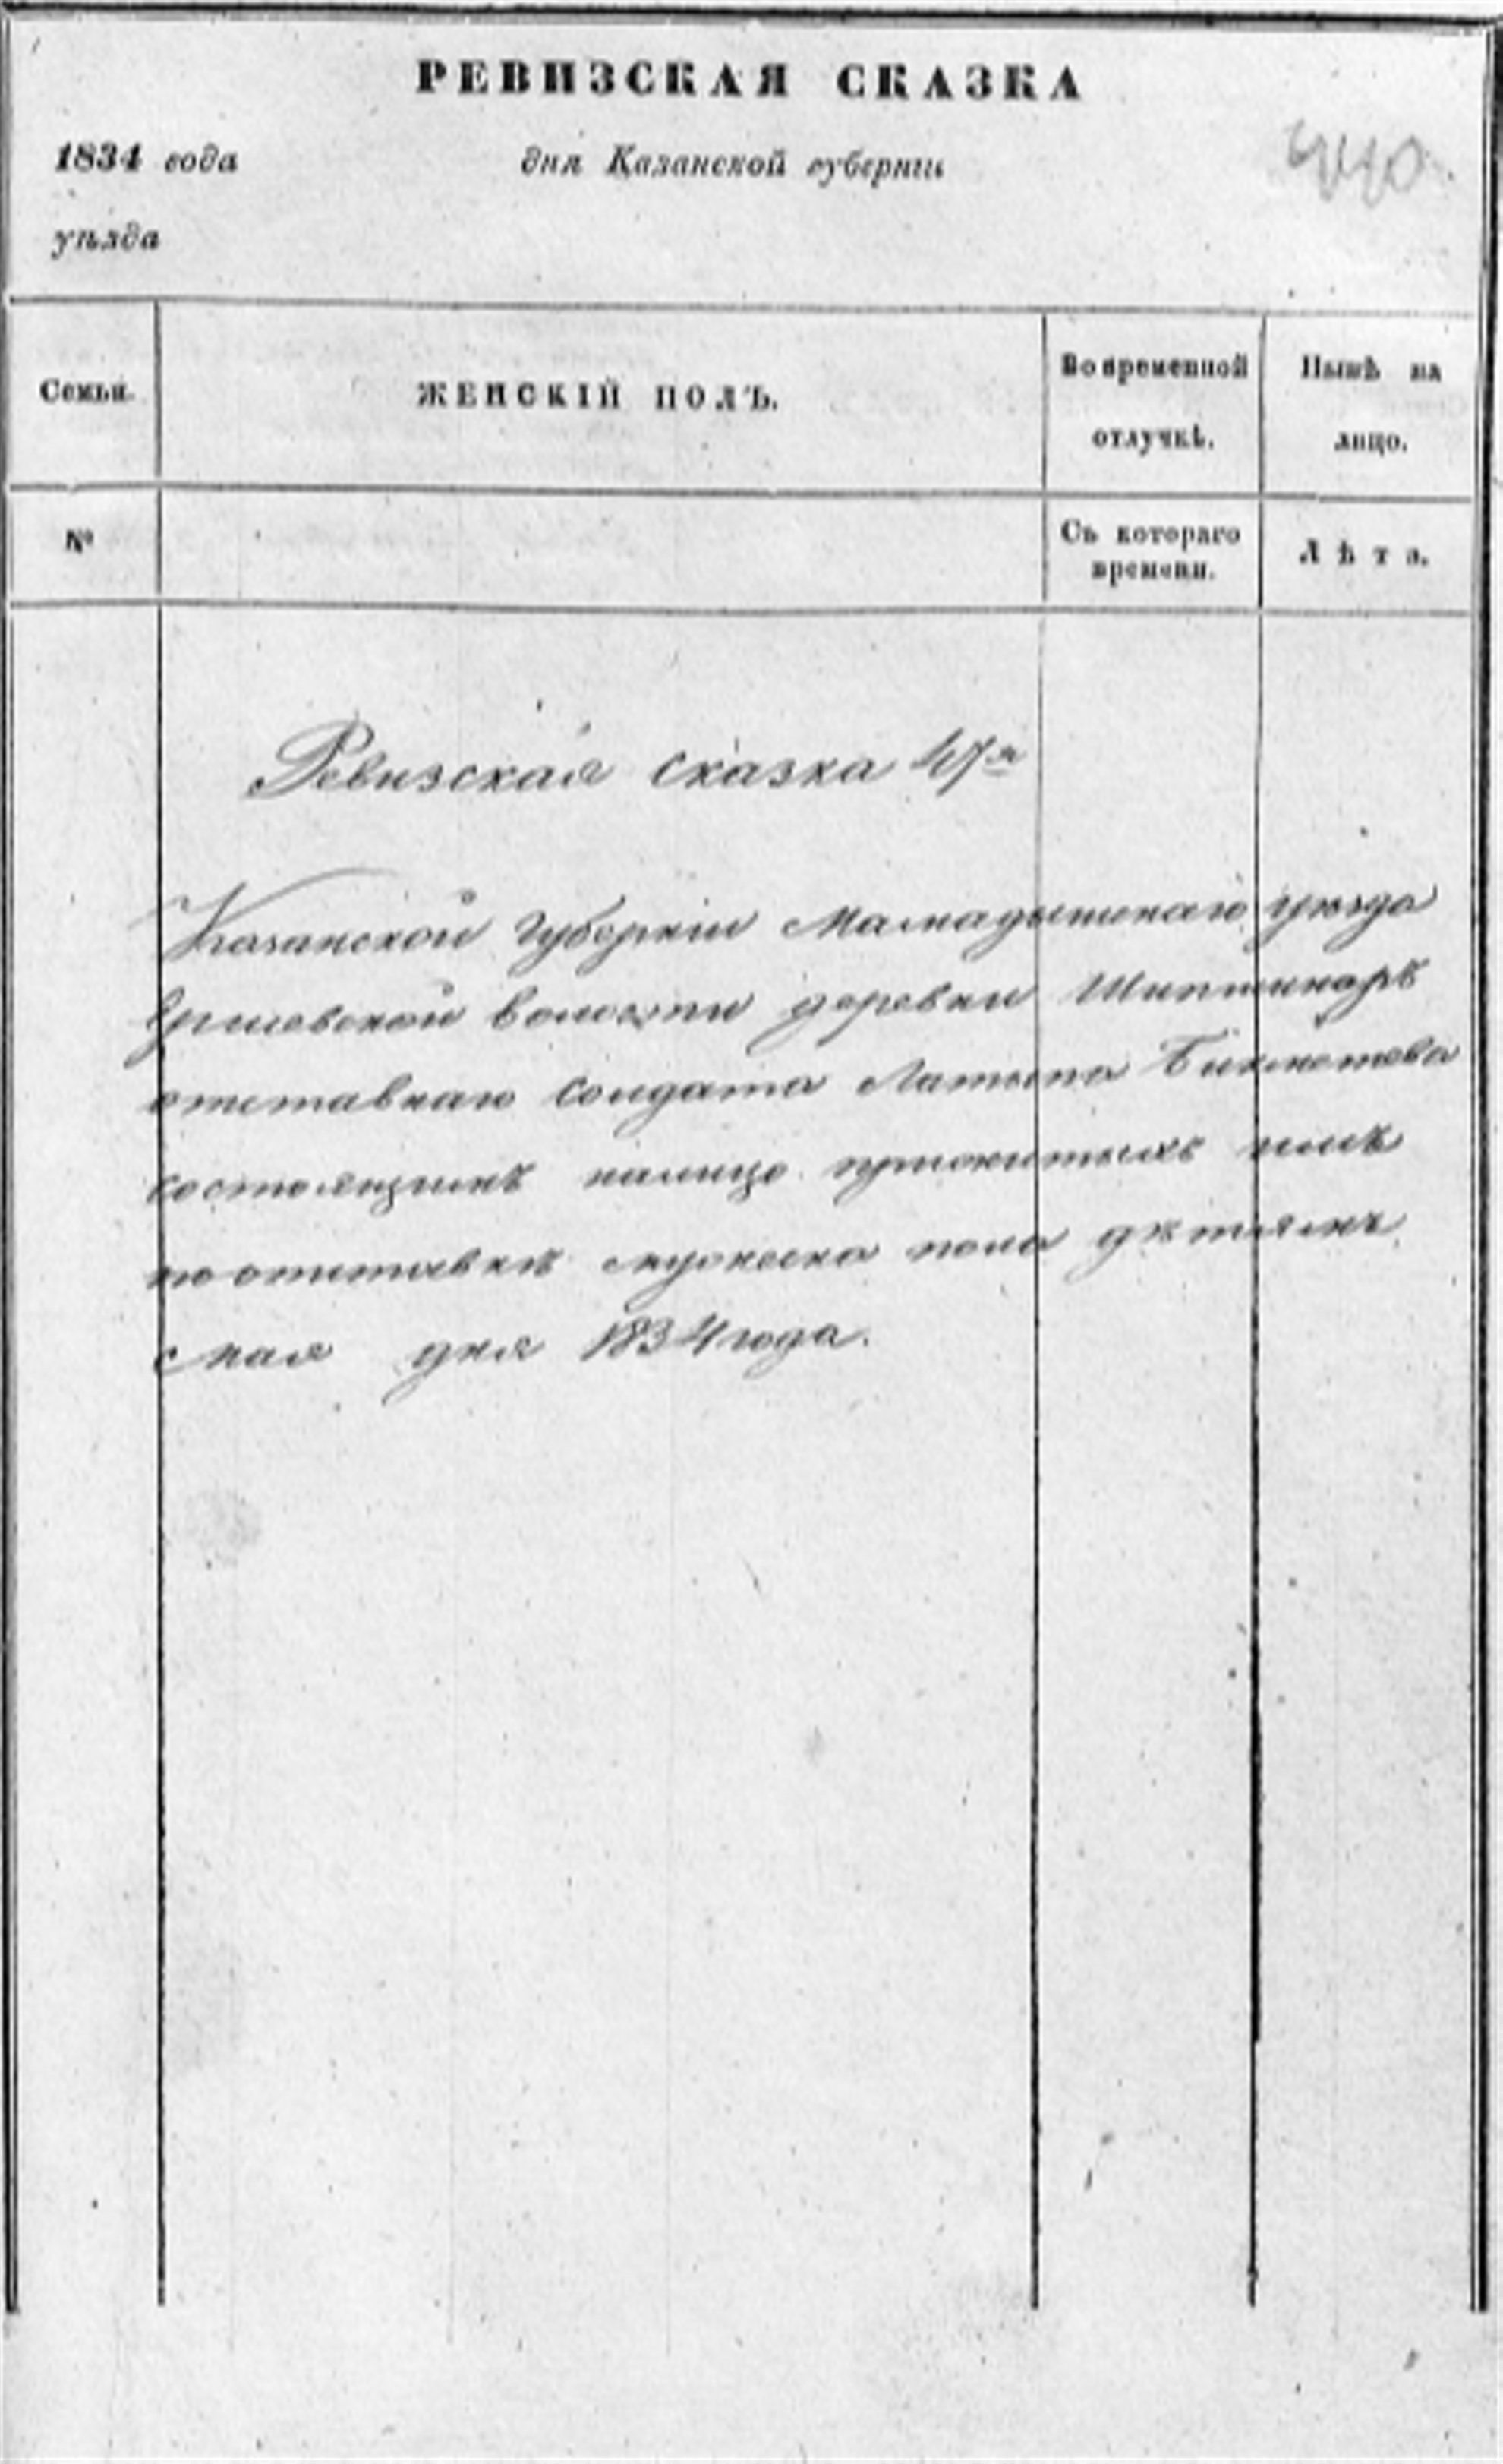 РЕВИЗСКАЯ СКАЗКА
1834 года дня Казанской губерніи
440.
уѣзда
Семьи. ЖЕНСКІЙ ПОЛЪ. Во временной отлучкѣ. Нынѣ на лицо.
№ Съ котораго времени. Лѣта.
Ревизская сказка 47я
Казанской губерніи Мамадышскаго уѣзда
волости деревни Шиптинаръ
отставнаго солдата Латыпа Бикметева
состоящимъ налицо прижитыхъ имъ
по отставкѣ мужеска пола дѣтямъ
мая дня 1834 года.